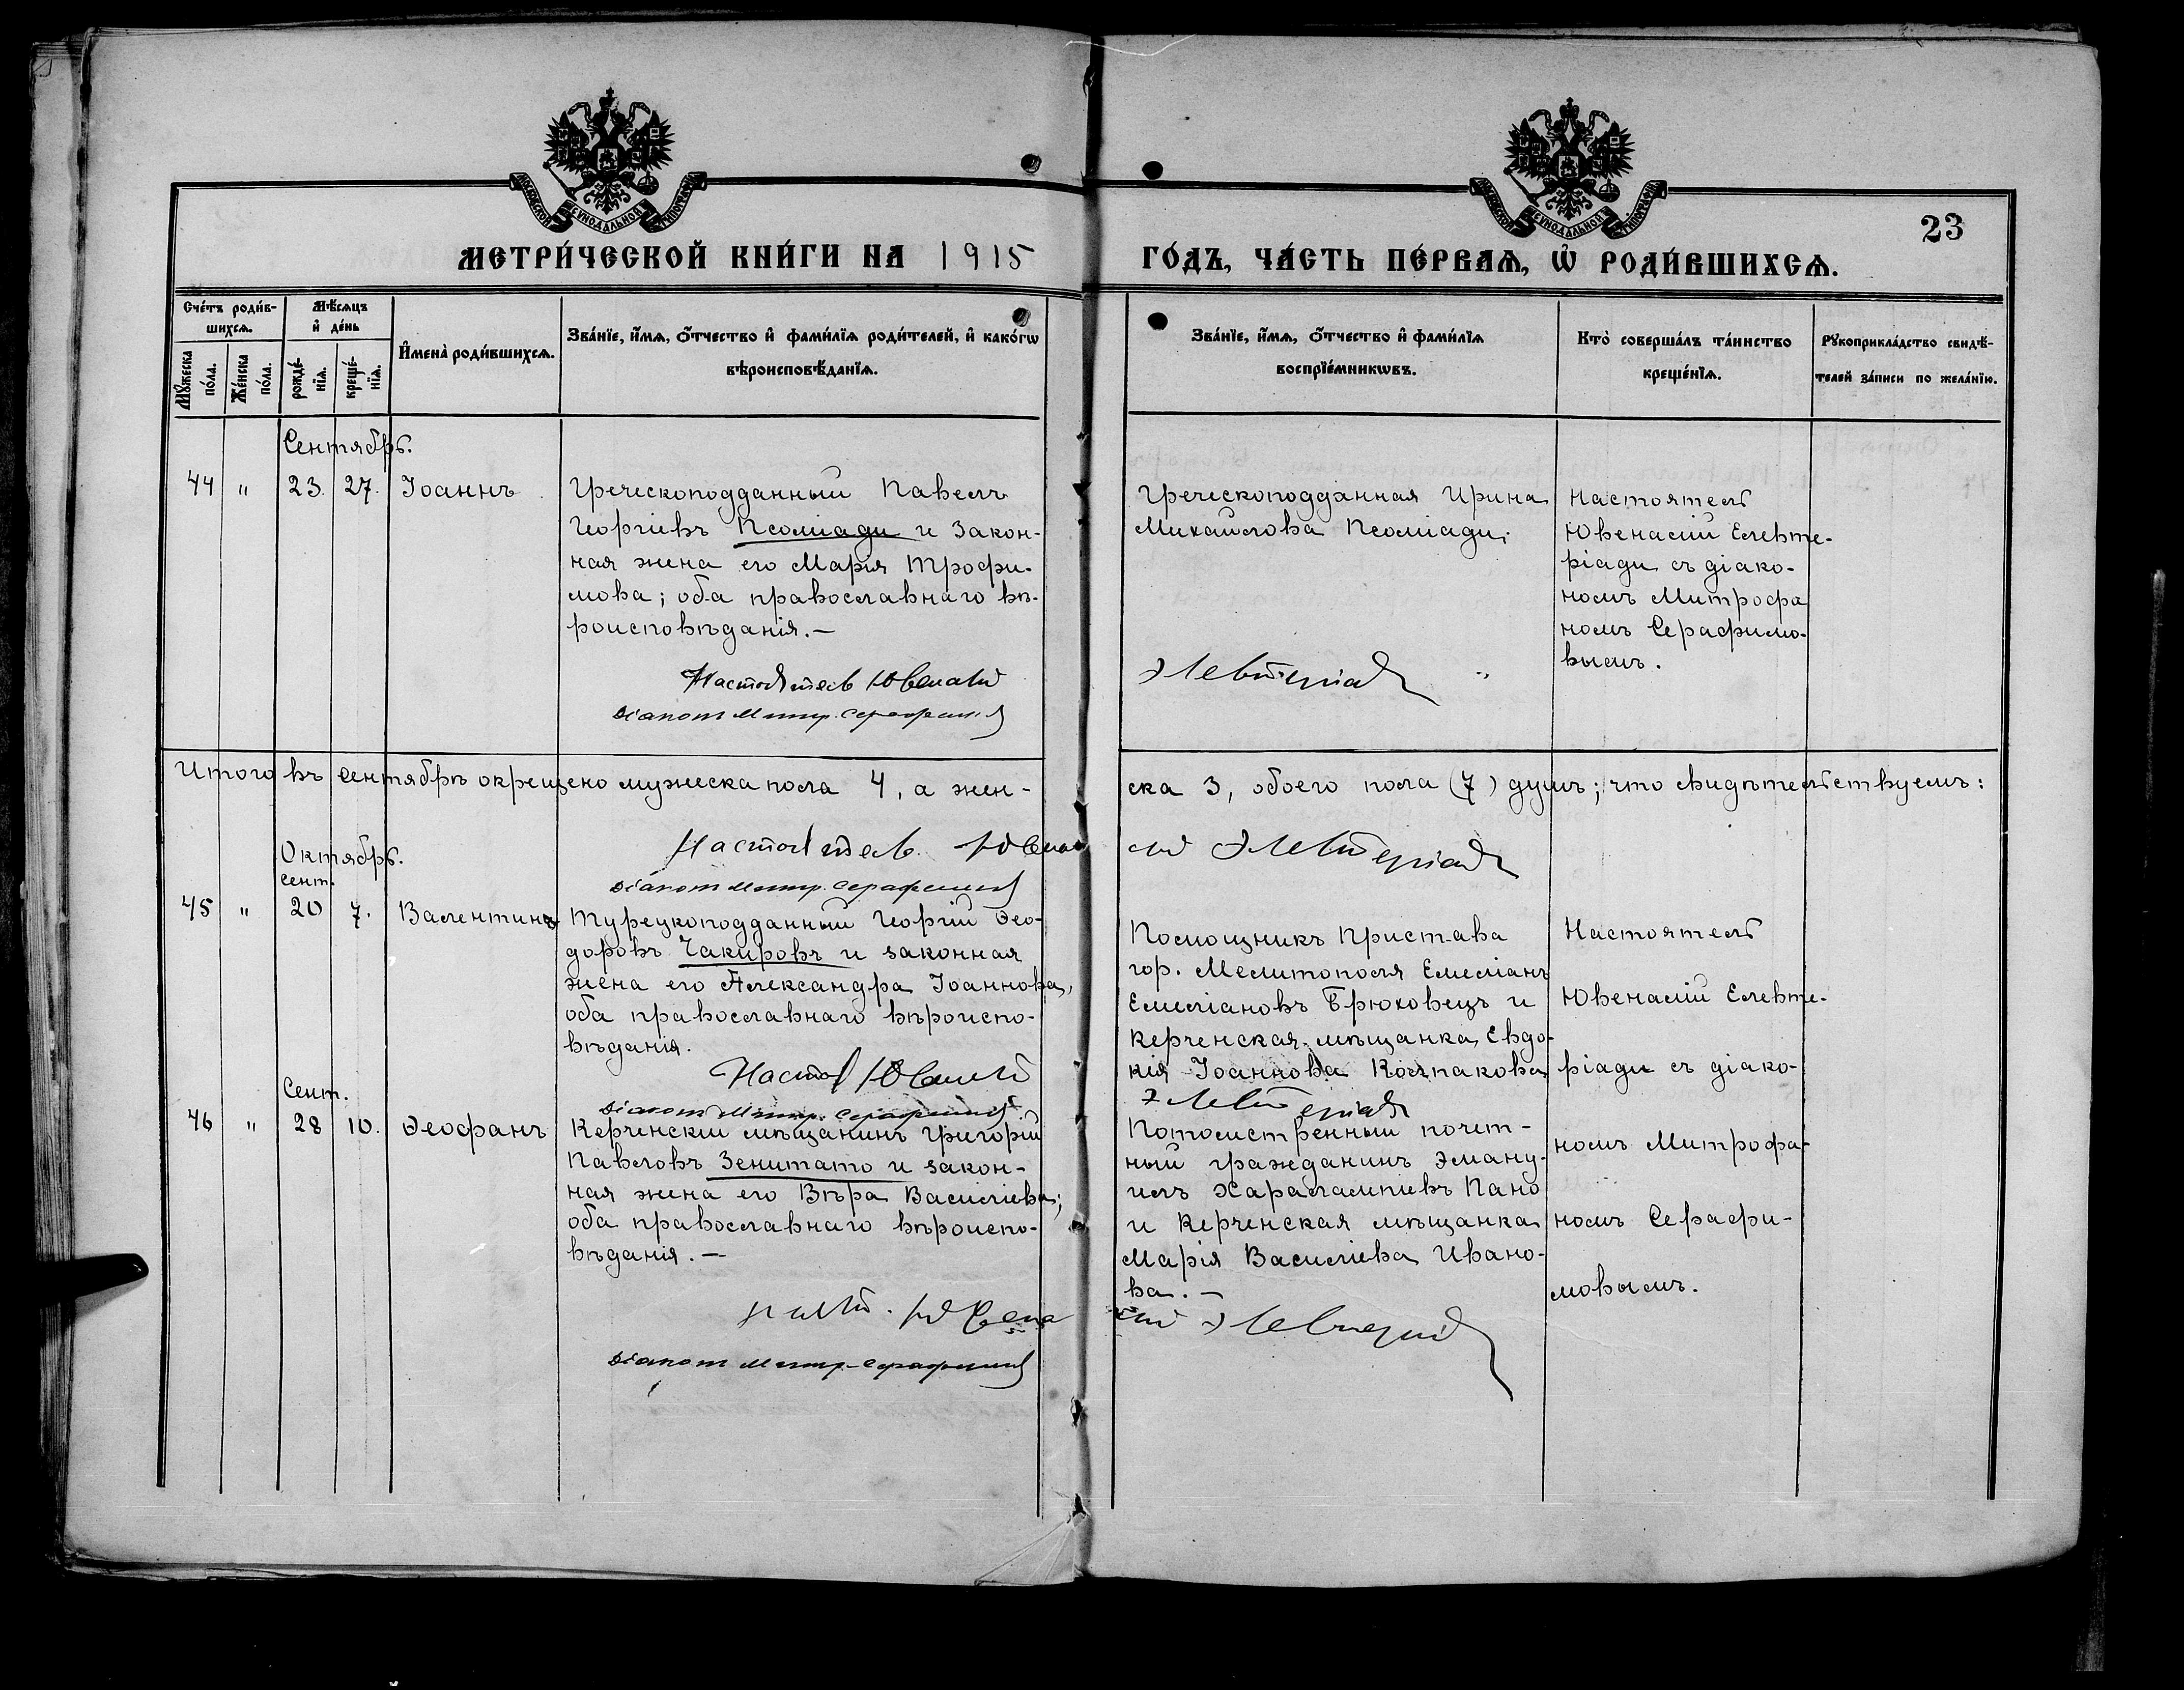 МОСКОВСКОЙ СѴНОДАЛЬНОЙ ТИПОГРАФІИ
МОСКОВСКОЙ СѴНОДАЛЬНОЙ ТИПОГРАФІИ
23
МЕТРИ́ЧЕСКОЙ КНИ́ГИ НА 1915
ГО́ДЪ, ЧА́СТЬ ПЕ́РВАѦ, Ѡ҆ РОДИ́ВШИХСѦ.
Сче́тъ роди́в-
шихсѧ.
Мѣ́сѧцъ
и҆ де́нь
Мꙋ́жеска по́ла.
Же́нска по́ла.
рожде́-
нїѧ.
креще́-
нїѧ.
И҆мена̀ роди́вшихсѧ.
Зва́нїе, и҆́мѧ, ѻ҆́тчество и҆ фами́лїѧ роди́телей, и҆ како́гѡ
вѣроисповѣ́данїѧ.
Зва́нїе, и҆́мѧ, ѻ҆́тчество и҆ фами́лїѧ
воспрїе́мникѡвъ.
Кто̀ соверша́лъ та́инство
креще́нїѧ.
Рꙋкоприкла́дство свидѣ́-
телей за́писи по жела́нїю.
Сентябрь.
44 " 23. 27. Іоаннъ
Греческоподданный Павелъ
Георгіевъ Псоміади и закон-
ная жена его Марія Трофи-
мова; оба православнаго вѣ-
роисповѣданія.—
Настоятель Ювеналій
Діаконъ Митр. Серафимов
Греческоподданная Ирина
Михайлова Псоміади.
Элевтеріади
Настоятель
Ювеналій Елевте-
ріади съ діако-
номъ Митрофа
номъ Серафимо-
вымъ.
Итого въ сентябрѣ окрещено мужеска пола 4, а жен-
ска 3, обоего пола (7) душъ; что свидѣтельствуемъ:
Настоятель Ювена
лій Элевтеріади
Діаконъ Митр. Серафимов
Октябрь.
сент.
45 " 20 7. Валентинъ
Турецкоподданный Георгій Ѳео-
доровъ Чакировъ и законная
жена его Александра Іоаннова,
оба православнаго вѣроиспо-
вѣданія.
Настоя Ювеналій
Діаконъ Митр. Серафимов
Помощникъ Пристава
гор. Мелитополя Емеліанъ
Емеліановъ Брюховецъ и
Керченская мѣщанка Евдо-
кія Іоаннова Колпакова
Элевтеріади
Настоятель
Ювеналій Елевте-
ріади съ діако-
номъ Митрофа-
номъ Серафи-
мовымъ.
Сент.
46 " 28 10. Ѳеофанъ
Керченскій мѣщанинъ Григорій
Павловъ Зенитато и закон-
ная жена его Вѣра Василіева;
оба православнаго вѣроиспо-
вѣданія.—
Наст. Ювена
Діаконъ Митр. Серафимов
Потомственный почет-
ный гражданинъ Эману-
илъ Харалампіевъ Пано
и Керченская мѣщанка
Марія Василіева Ивано-
ва.—
лій Элевтеріади